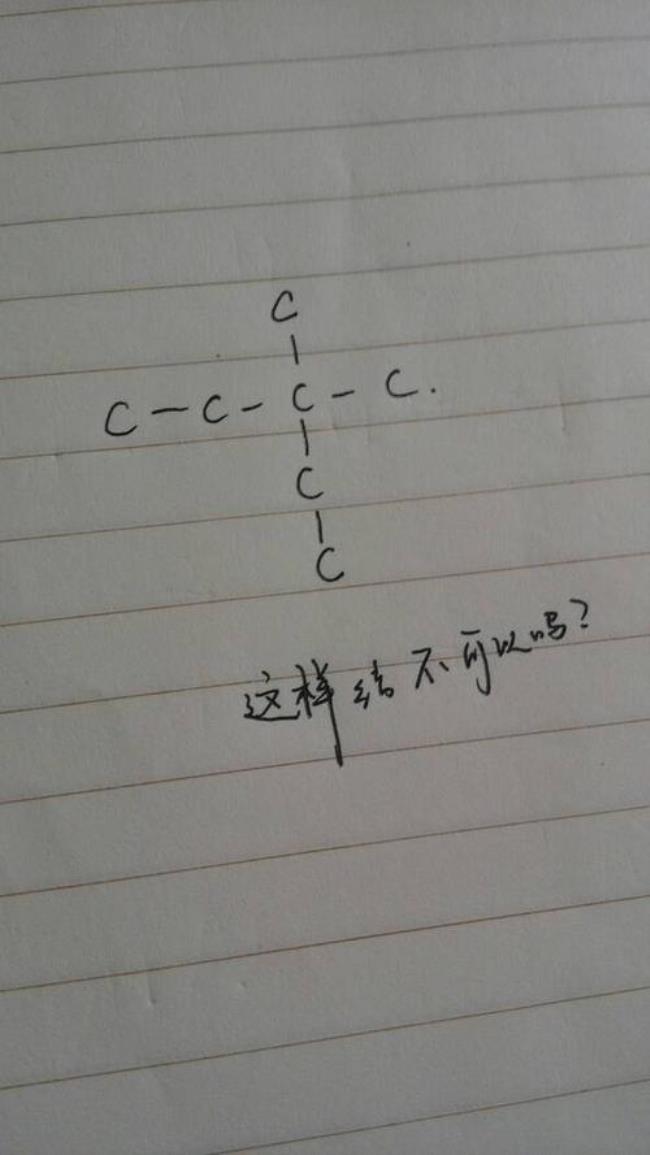 C
C - C - C - C.
C
C
这样结不可以吗?